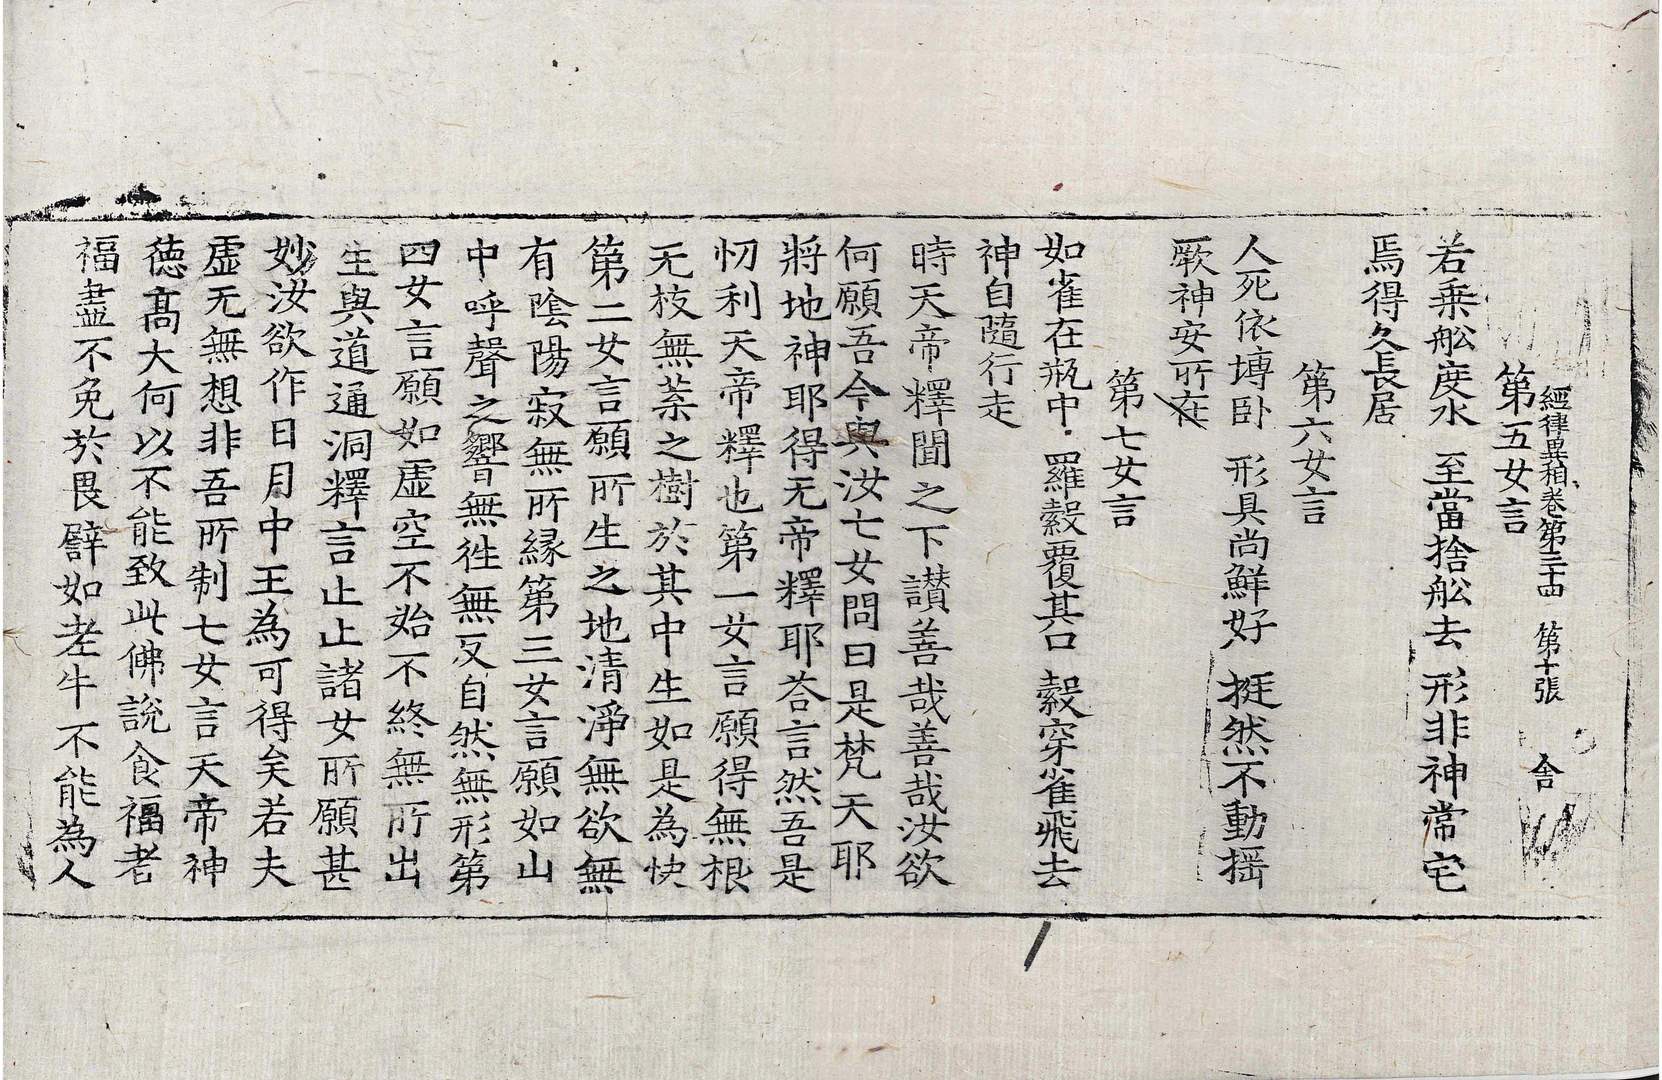 經律異相卷第三十四 第十張 舍
第五女言
若乗舩度水 至當捨舩去 形非神常宅
焉得久長居
第六女言
人死依塼卧 形具尚鮮好 挺然不動揺
厥神安所在
第七女言
如雀在瓶中 羅縠覆其口 縠穿雀飛去
神自隨行走
時天帝釋聞之下讃善哉善哉汝欲
何願吾今與汝七女問曰是梵天耶
將地神耶得无帝釋耶荅言然吾是
忉利天帝釋也第一女言願得無根
无枝無葉之樹於其中生如是為快
第二女言願所生之地清淨無欲無
有陰陽寂無所縁第三女言願如山
中呼聲之響無徃無反自然無形第
四女言願如虛空不始不終無所出
生與道通洞釋言止止諸女所願甚
妙汝欲作日月中王為可得矣若夫
虛无無想非吾所制七女言天帝神
德髙大何以不能致此佛說食福者
福盡不免於畏譬如老牛不能為人